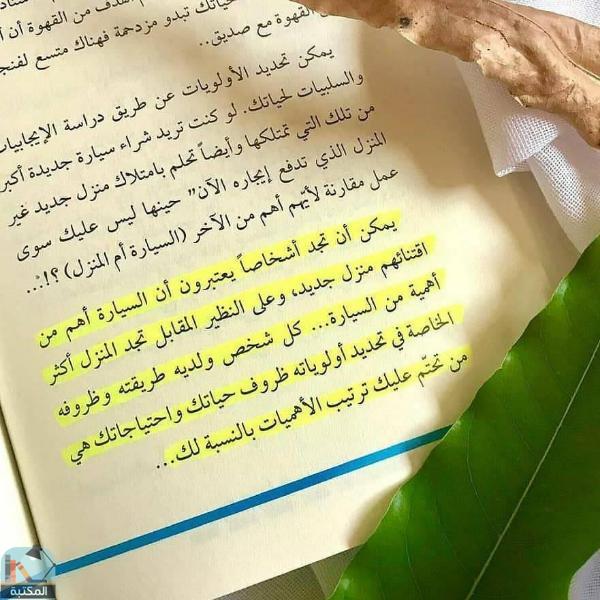 حياتك تبدو مزدحمة فهناك متسع لفنجـ
القهوة مع صديق..
يمكن تحديد الأولويات عن طريق دراسة الإيجابيات
والسلبيات لحياتك. لو كنت تريد شراء سيارة جديدة أكبر
من تلك التي تمتلكها وأيضاً تحلم بامتلاك منزل جديد غير
المنزل الذي تدفع إيجاره الآن" حينها ليس عليك سوى
عمل مقارنة لأيهم أهم من الآخر (السيارة أم المنزل)؟!...
يمكن أن تجد أشخاصاً يعتبرون أن السيارة أهم من
اقتنائهم منزل جديد، وعلى النظير المقابل تجد المنزل أكثر
أهمية من السيارة... كل شخص ولديه طريقته وظروفه
الخاصة في تحديد أولوياته ظروف حياتك واحتياجاتك هي
من تحتّم عليك ترتيب الأهميات بالنسبة لك...
المكتبة